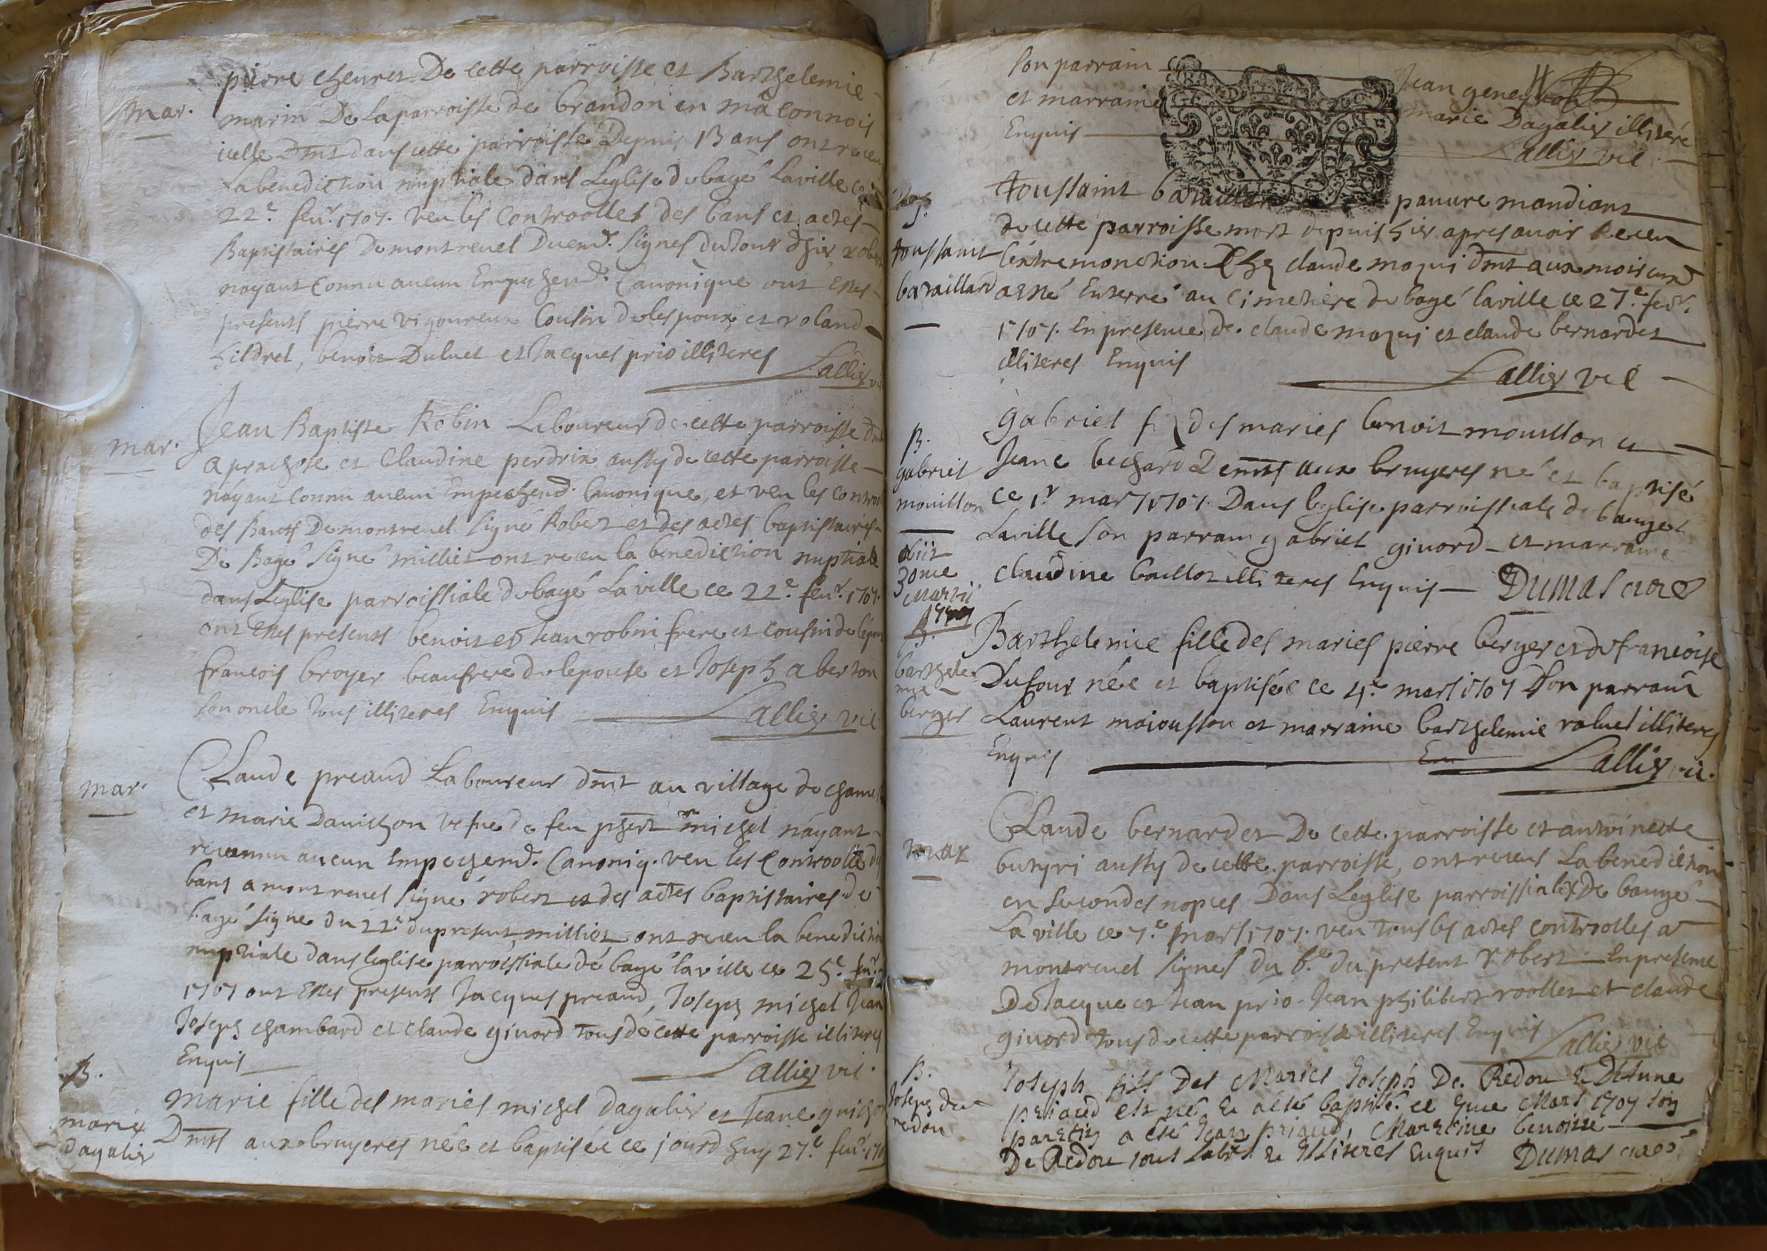 pierre cheuret De cette parroisse et Barthelemie
mar.
marin De la parroisse de brandon en mâconnois
icelle dmt dans cette parroisse Depuis 13 ans ont receu
La benediction nuptiale dans Leglise de bagé Laville ce
22e feur. 1707. veu les controolles des bans et actes
Baptistaires De montreuel Duemt. signes du Jour d'hier robert
nayant connu aucun Empechemt. Canonique ont Estes
presents pierre vigoureux Cousin de lespoux et roland
hildret, benoit Duluet et Jacques prio illiteres
Lallier vic
mar.
Jean Baptiste Robin Laboureur de cette parroisse dmt
a prachose et Claudine perdrix aussy de cette parroisse
nayant connu aucun Empechemt. Canonique, et veu les control
des Bancs De montreuel signé Robert et des actes baptistaires
De Bagé signé milliet ont receu la benediction nuptiale
dans Leglise parroissiale de bagé Laville ce 22e feur. 1707.
ont Estes presents benoit et Jean robin frere et cousin de lepoux
francois broyer beaufrere de lepouse et Joseph aberton
son oncle tous illiteres Enquis
Lallier vic
mar.
Claude preaud Laboureur dmt au village de cham
et marie Danichon vefue de feu phert michel nayant
reconnu aucun Empechemt. Canoniq. veu les Controolle du
bans a montreuel signé robert et des actes baptistaires de
bagé signe du 22e du present milliet ont receu la benediction
nuptiale dans leglise parroissiale de bagé la ville ce 25e feur.
1707 ont Estes presents Jacques preaud, Joseph michel Jean
Joseph chambard et claude giuord tous de cette parroisse illiteres
Enquis
Lallier vic.
B.
marie
dagalier
Marie fille des maries michel dagalier et Jeane guichon
Dmts aux bruyeres née et baptisée ce jourd huy 27e feur. 170
son parrain
et marraine
Enquis
Jean gene
marie Dagalier illiteré
Lallier vic
toussaint
barraillard
toussaint barraillard pauure mandiant
de cette parroisse mort depuis hier apres avoir Receu
lextremonction Chez claude moqui dmt aux moiseurs
a esté Enterré au Cimetiere de bagé laville ce 27e feur.
1707. En presence de claude moqui et claude bernardet
illiteres Enquis
Lallier vic
B.
gabriel
mouillon
obiit
30me
Martii
gabriel fi des maries benoit mouillon et
Jeane bechard Demts aux bruyeres né et baptisé
ce 1r mars 1707. Dans leglise parroissiale de baugé
Laville son parrain gabriel giuord et marraine
claudine baillot illiteres Enquis DUMAS curé
B.
barthele
mie
berger
Barthelemie fille des maries pierre berger et de francoise
Dufour née et baptisée ce 4e mars 1707 son parrain
Laurent maiousson et marraine barthelemie raluel illiteres
Enquis
Lallier vic.
Claude bernardet De cette parroisse et antoinette
butyri aussy de cette parroisse, ont receu La benediction
en secondes nopces Dans Leglise parroissialle de baugé
La ville ce 7e mars 1707. veu tous les actes controolles a
montreuel signés du 6e du present Robert. En presence
De Jacque et Jean prio Jean philibert roollet et claude
giuord tous de cette parroisse illiteres Enquis Lallier vic
B.
Joseph de
redou
Joseph fils Des Maries Joseph De Redou & Deune
priaud est né & a esté baptisé ce 9me Mars 1707 son
parein a esté Jean priaud, Mareine benoitte
De Redou tous Labrs & Illiteres Enquis DUMAS curé